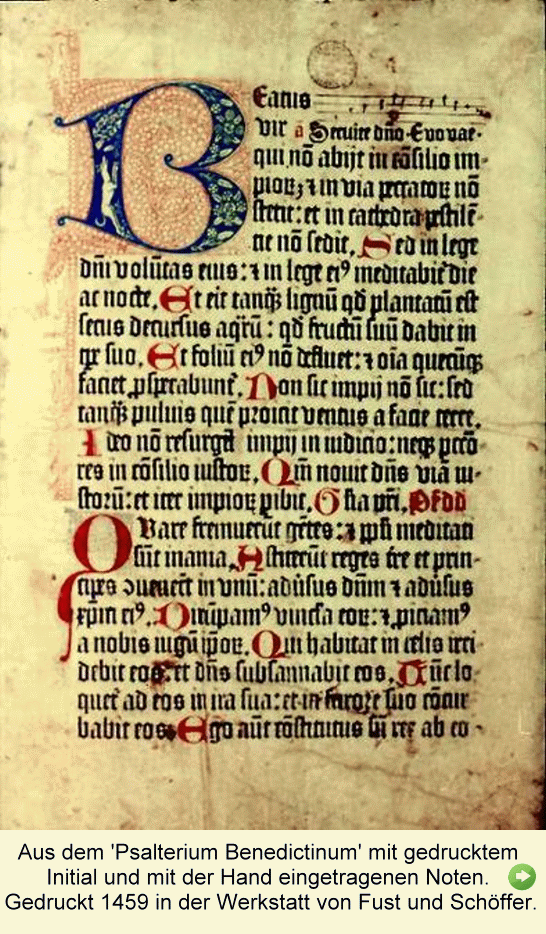 Beatus
vir a Seruite dño Euouae.
qui nõ abijt in cõsilio im-
pioꝝ; ⁊ in via peccatoꝝ nõ
stetit: et in cathedra pestilẽ-
tie nõ sedit, Sed in lege
dñi volũtas eius: ⁊ in lege eiꝰ meditabit̃ die
ac nocte, Et erit tanq̃ lignũ qd̃ plantatũ est
secus decursus aq̃rũ: qd̃ fructũ suũ dabit in
tꝑe suo, Et foliũ eiꝰ nõ defluet: ⁊ oĩa quecũqꝫ
faciet ꝓsperabunt̃, Non sic impij nõ sic: sed
tanq̃ puluis quẽ proicit ventus a facie terre,
Ideo nõ resurgũt impij in iudicio: neqꝫ pctõ
res in cõsilio iustoꝝ, Qm̃ nouit dñs viã iu-
storũ: et iter impioꝝ ꝑibit, Glia pr̃i,
Quare fremuerũt gẽtes: ⁊ ppłi meditati
sũt inania, Astiterũt reges tr̃e et prin-
cipes ꝯuenert̃ in vnũ: aduͤsus dñm ⁊ aduͤsus
xpm̃ eiꝰ, Dirũpamꝰ vincła eoꝝ: ⁊ ꝓiciamꝰ
a nobis iugũ ipoꝝ, Qui habitat in celis irri
debit eos: et dñs subsannabit eos, Tũc lo
quet̃ ad eos in ira sua: et in furore suo cõtur
babit eos, Ego aũt cõstitutus sũ rex ab eo-
Aus dem 'Psalterium Benedictinum' mit gedrucktem
Initial und mit der Hand eingetragenen Noten.
Gedruckt 1459 in der Werkstatt von Fust und Schöffer.